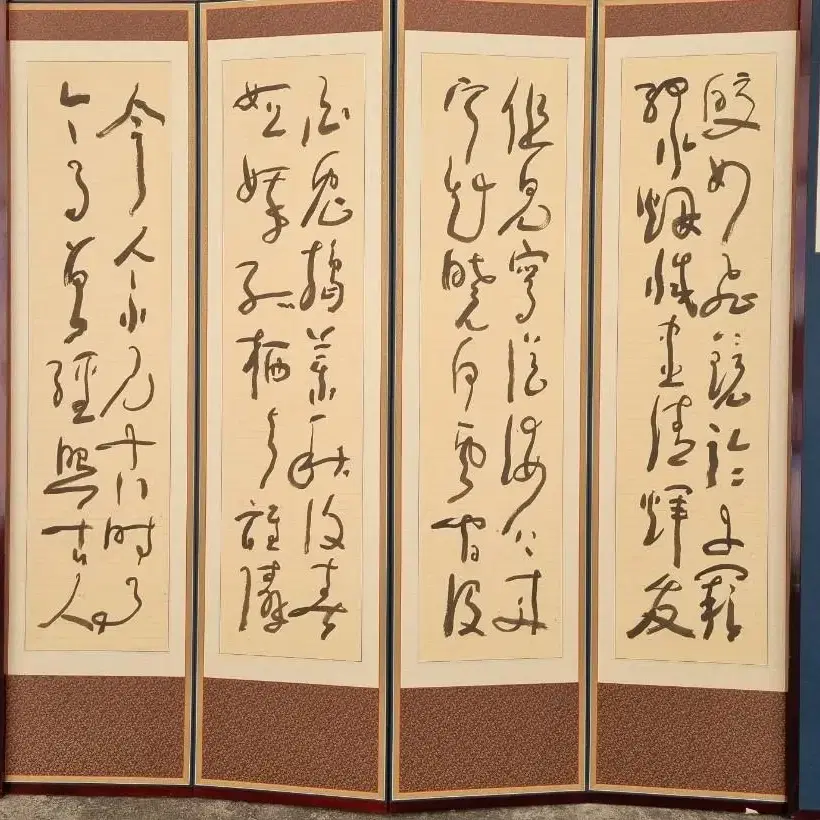 皎如飛鏡臨丹闕
綠煙滅盡清輝發
但見宵從海上來
寧知曉向雲間没
白兔搗藥秋復春
姮娥孤栖與誰隣
今人不見古時月
今月曾經照古人